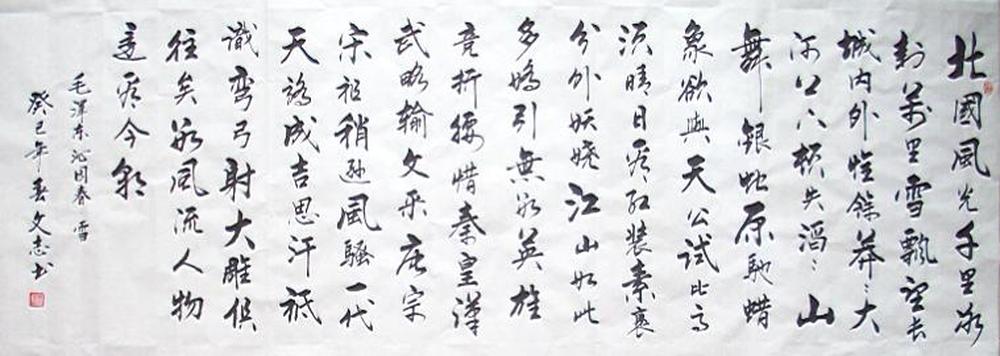 北國风光千里冰
封萬里雪飄望长
城内外惟餘莽〻大
河上下頓失滔〻山
舞銀蛇原馳蜡
象欲與天公試比高
須晴日看紅裝素裹
分外妖嬈江山如此
多嬌引無數英雄
竞折腰惜秦皇漢
武略輸文采唐宗
宋祖稍遜風騷一代
天驕成吉思汗祗
識弯弓射大雕俱
往矣數风流人物
還看今朝
毛澤东沁园春 雪
癸巳年春文志书